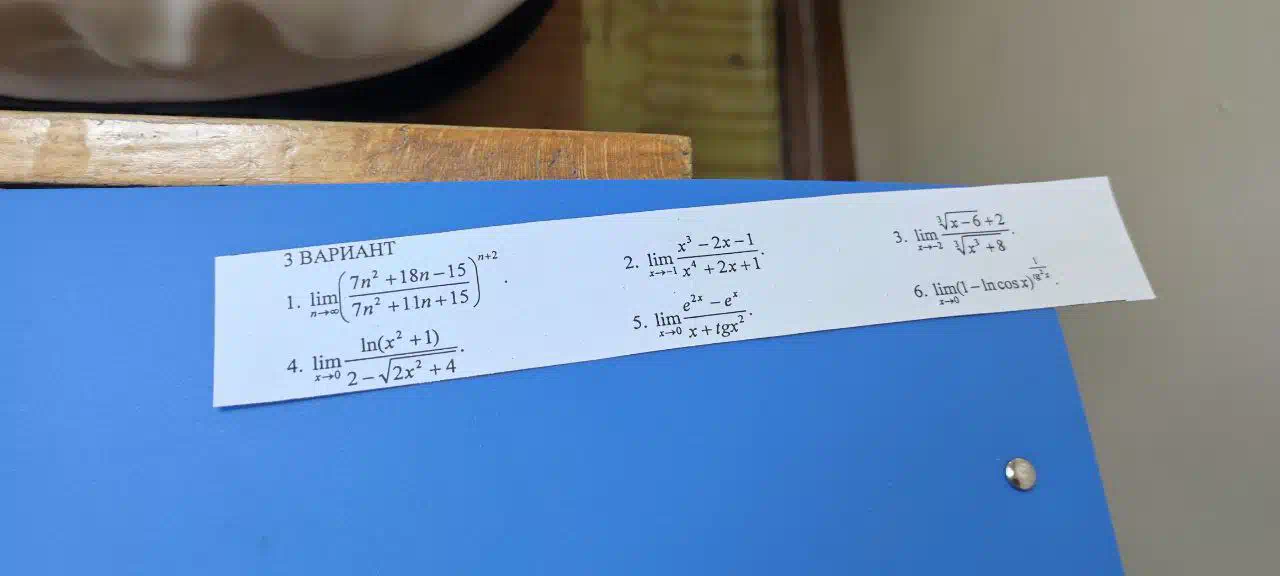 3 ВАРИАНТ
1. lim_{n→∞} ((7n² + 18n − 15)/(7n² + 11n + 15))^{n+2}.
2. lim_{x→−1} (x³ − 2x − 1)/(x⁴ + 2x + 1).
3. lim_{x→−2} (∛(x−6) + 2)/(∛(x³ + 8)).
4. lim_{x→0} ln(x² + 1)/(2 − √(2x² + 4)).
5. lim_{x→0} (e^{2x} − e^x)/(x + tgx²).
6. lim_{x→0} (1 − ln cos x)^{1/tg²x}.